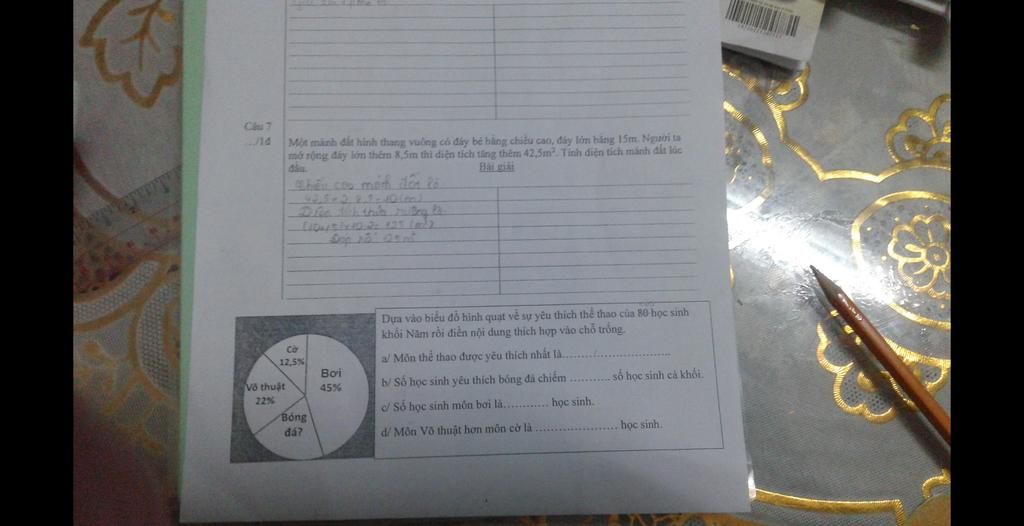 Câu 7
.../1đ
Một mảnh đất hình thang vuông có đáy bé bằng chiều cao, đáy lớn bằng 15m. Người ta
mở rộng đáy lớn thêm 8,5m thì diện tích tăng thêm 42,5m². Tính diện tích mảnh đất lúc
đầu.
Bài giải
Chiều cao mảnh đất là
42,5 × 2 : 8,5 = 10 (m)
Diện tích thửa ruộng là
125m²
Dựa vào biểu đồ hình quạt về sự yêu thích thể thao của 80 học sinh
khối Năm rồi điền nội dung thích hợp vào chỗ trống.
a/ Môn thể thao được yêu thích nhất là..............................
b/ Số học sinh yêu thích bóng đá chiếm ........... số học sinh cả khối.
c/ Số học sinh môn bơi là............ học sinh.
d/ Môn Võ thuật hơn môn cờ là ...................... học sinh.
Cờ
12,5%
Bơi
45%
Võ thuật
22%
Bóng
đá?